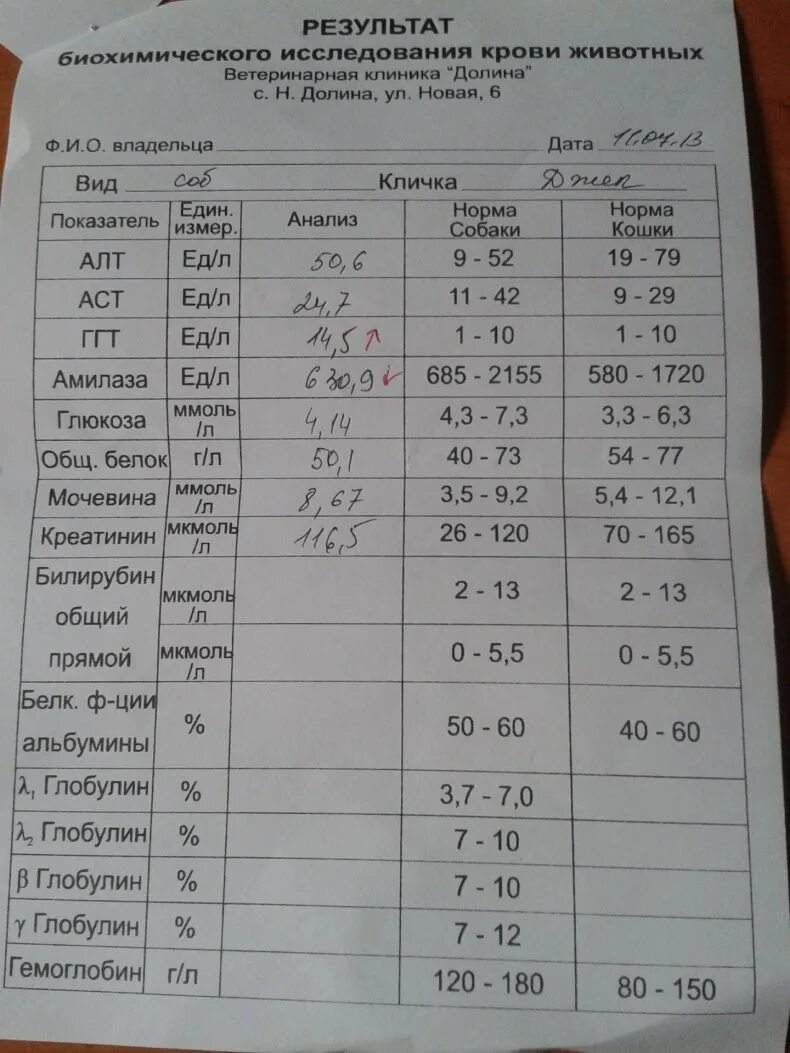 РЕЗУЛЬТАТ
биохимического исследования крови животных
Ветеринарная клиника "Долина"
с. Н. Долина, ул. Новая, 6
Ф.И.О. владельца Дата 11.07.13
Вид соб Кличка Джек
Показатель Един. измер. Анализ Норма Собаки Норма Кошки
АЛТ Ед/л 50,6 9 - 52 19 - 79
АСТ Ед/л 24,7 11 - 42 9 - 29
ГГТ Ед/л 14,5 ↑ 1 - 10 1 - 10
Амилаза Ед/л 630,9 ↓ 685 - 2155 580 - 1720
Глюкоза ммоль/л 4,14 4,3 - 7,3 3,3 - 6,3
Общ. белок г/л 50,1 40 - 73 54 - 77
Мочевина ммоль/л 8,67 3,5 - 9,2 5,4 - 12,1
Креатинин мкмоль/л 116,5 26 - 120 70 - 165
Билирубин общий мкмоль/л 2 - 13 2 - 13
прямой мкмоль/л 0 - 5,5 0 - 5,5
Белк. ф-ции альбумины % 50 - 60 40 - 60
λ₁ Глобулин % 3,7 - 7,0
λ₂ Глобулин % 7 - 10
β Глобулин % 7 - 10
γ Глобулин % 7 - 12
Гемоглобин г/л 120 - 180 80 - 150